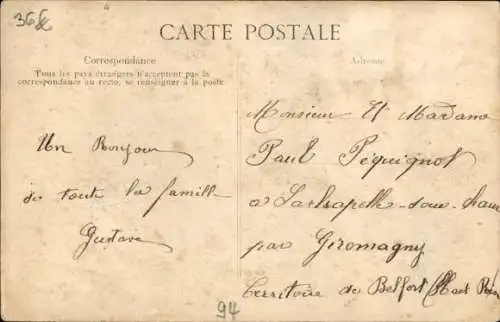 36 fc
CARTE POSTALE
Correspondance
Tous les pays étrangers n'acceptent pas la
correspondance au recto, se renseigner à la poste
Adresse
Un Bonjour
de toute la famille
Gustave
Monsieur Et Madame
Paul Péquignot
a Lachapelle-sous-chaux
par Giromagny
Territoire de Belfort (Haut Rhin
94